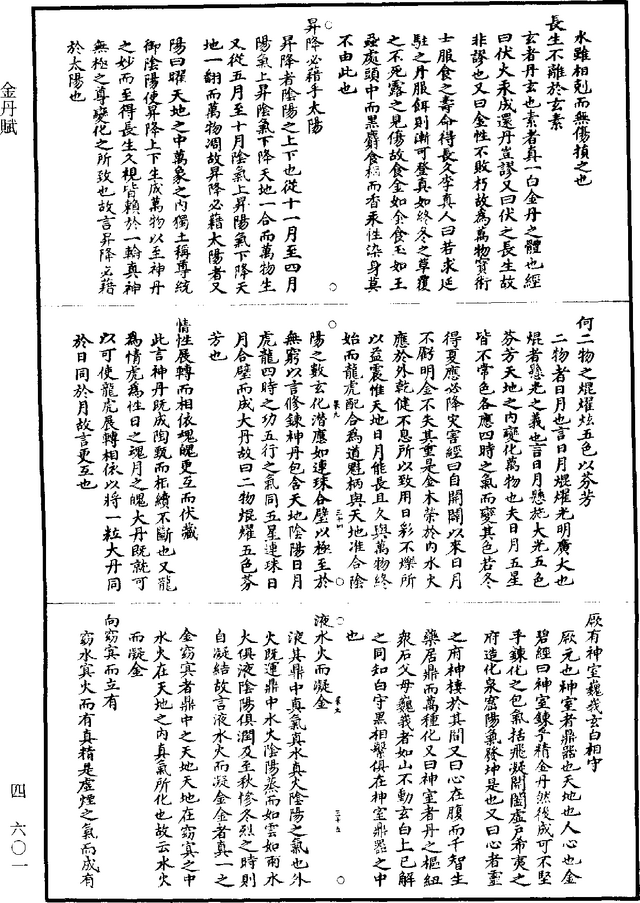 金丹賦
水雖相剋而無傷損之也
長生不離於玄素
玄者丹玄也素者真一白金丹之體也經
曰伏火汞成還丹豈謬又曰伏之長生故
非謬也又曰金性不敗朽故為萬物寶術
士服食之壽命得長久李真人曰若求延
駐之丹服餌則漸可登真如終冬之草覆
之不死露之見傷故食金如金食玉如玉
蝨處頭中而黑麝食栢而香汞性染身莫
不由此也
昇降必藉乎太陽
昇降者陰陽之上下也從十一月至四月
陽氣上昇陰氣下降天地一合而萬物生
又從五月至十月陰氣上昇陽氣下降天
地一翻而萬物凋故昇降必藉太陽者又
陽曰曜天地之中萬象之內獨土稱尊統
御陰陽使昇降上下生成萬物以至神丹
之妙而至得長生久視皆賴於一輪真神
無極之尊變化之所致也故言昇降必藉
於太陽也
何二物之焜燿炫五色以芬芳
二物者日月也言日月焜燿光明廣大也
焜者懸光之義也言日月懸於大光五色
芬芳天地之內變化萬物也夫日月五星
皆不常色各應四時之氣而變其色若冬
得夏應必降灾害經曰自開闢以來日月
不虧明金不失其重是金木榮於內水火
應於外乾健不息所以致用日彩不爍所
以益震惟天地日月能長且久與萬物終
始而龍虎配合為道魁柄與天地准合陰
陽之數玄化潛應如連珠合璧以極至於
無窮以言修鍊神丹包含天地陰陽日月
虎龍四時之功五行之氣同五星連珠日
月合壁而成大丹故曰二物焜耀五色芬
芳也
情性展轉而相依塊魄更互而伏藏
此言神丹既成陶甄而相續不斷也又龍
為情虎為性日之魂月之魄大丹既就可
以可使龍虎展轉相依以將一粒大丹同
於日同於月故言更互也
厥有神室巍峩玄白相守
厥元也神室者鼎器也天地也人心也金
碧經曰神室鍊乎精金丹然後成可不堅
乎鍊化之包氣括飛凝開闔虛戶希夷之
府造化泉窟陽氣發坤是也又曰心者靈
之府神棲於其間又曰心在腹而千智生
藥居鼎而萬種化又曰神室者丹之樞紐
衆石父母巍峩者如山不動玄白上已解
之同知白守黑相繫俱在神室鼎器之中
也
液水火而凝金
液其鼎中真氣真水真火陰陽之氣也外
火既運鼎中水火陰陽蒸而如雲如雨水
火俱液陰陽俱潤及至秋慘冬烈之時則
自凝結故言液水火而凝金金者真一之
金窈冥者鼎中之天地天地在窈冥之中
水火在天地之內真氣所化也故云水火
而凝金
向窈冥而立有
窈水冥火而有真精是虛煙之氣而成有
四 六〇一